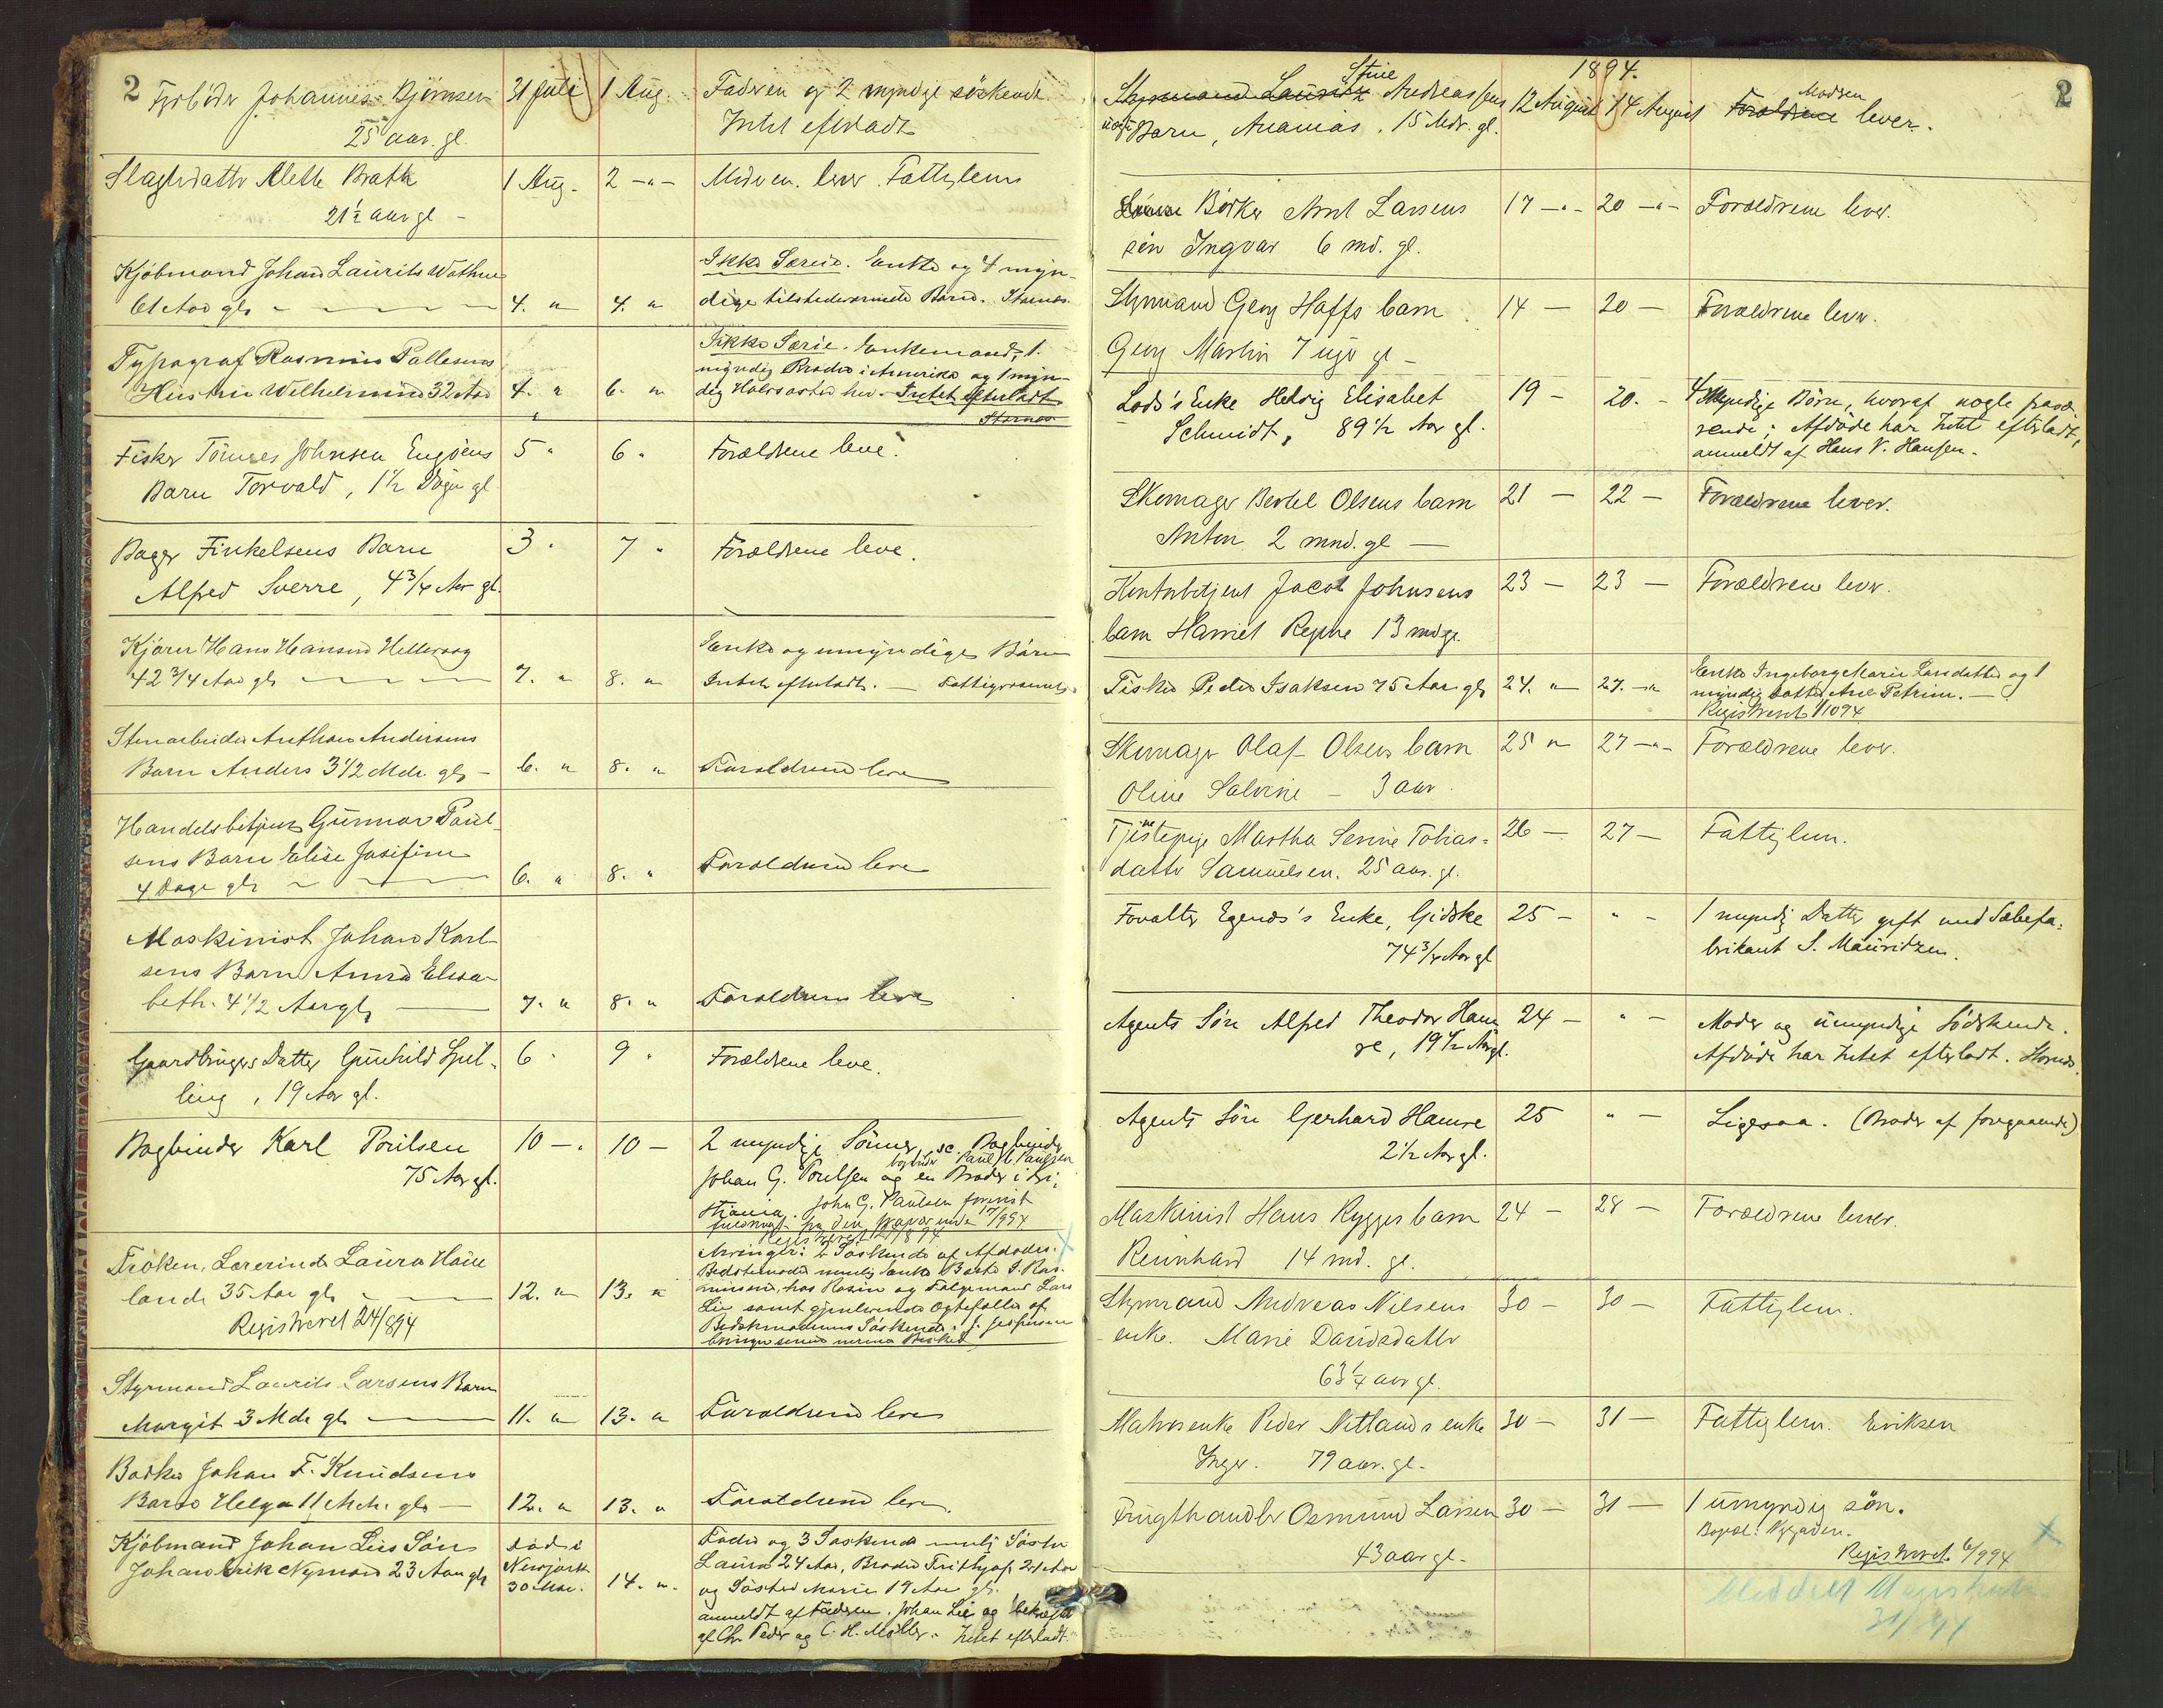 2
Fyrbøder Johannes Bjørnsen 31 Juli 1 Aug. Faderen og 2 myndige søskende
25 aar. gl. Intet efterladt
Slagterdatter Alette Bratt 1 Aug. 2 -"- Moderen lever. Fattiglem
21½ aar gl -
Kjøbmand Johan Laurits Wathne Ikke Særeie. Enke og 4 myn-
61 Aar gl. 4. " 4. " dige tilstedeværende Børn.
Typograf Rasmus Pallesens Ikke Særeie. Enkemand, 1
Hustru Wilhelmine 32 Aar 4. " 6. " myndig Broder i Amerika og 1 myn-
dig Halvsøster her. Intet efterladt
Fisker Tønnes Johnsen Engøens 5 " 6 " Forældrene leve.
Barn Torvald, 1½ Døgn gl
Bager Finkelsens Barn 3 " 7 " Forældrene leve.
Alfred Sverre, 4¾ Aar gl.
Kjører Hans Hansen Hellevaag Enke og umyndige Børn
42¾ Aar gl. 7. " 8. " Intet efterladt. —
Stenarbeider Anthon Andersens
Barn Anders 3½ Mdr. gl. - 6. " 8. " Forældrene leve
Handelsbetjent Gunnar Paul-
sens Barn Elise Josefine
4 Dage gl. 6. " 8. " Forældrene leve
Maskinist Johan Karl-
sens Barn Anna Elisa-
beth. 4½ Aar gl. 7. " 8. " Forældrene leve
Gaardbrugers Datter Gunhild Spil- 6 " 9 " Forældrene leve.
ling, 19 Aar gl.
Bogbinder Karl Poulsen 10 - 10 - 2 myndige Sønner, sc. Bogbinder
75 Aar gl. bogbinder Paul C. Paulsen
Johan G. Poulsen og en Broder i Kri-
stiania. John G. Paulsen forevist
17/9 94
Registreret 21/8 94
Arvinger: 2 Søskende af Afdødes
Frøken, Lærerinde Laura Haue Bedstemoder
land, 35 Aar gl. 12. " 13. "
Registreret 24/8 94 samt gjenlevende Ægtefælle af
Bedstemoderens Søskende. J. Jespersen
Styrmand Laurits Larsens Barn
Margit 3 Mdr gl. 11. " 13. " Forældrene leve
Bødker Johan F. Knudsens
Barn Helga 11 Mdr. gl. 12. " 13. " Forældrene leve.
Kjøbmand Johan Lies Søn død i Fader og 3 Søskende nemlig Søster
Johan Erik Nyman 23 Aar gl. Newjork Laura 24 Aar, Broder Frithjof 21 Aar
30 Mai. 14. " og Søster Marie 19 Aar gl.
anmeldt af Faderen. Johan Lie og bekræftet
af Chr. Peder og C. H. Møller. Intet efterladt.
1894. 2
Stine Modren
Styrmand Lauritz Andreassens 12 August 14 August Forældrene lever.
uægte Barn, Ananias. 15 Mdr. gl.
Bødker Arnt Larsens 17 -"- 20 -"- Forældrene lever.
søn Ingvar 6 md. gl.
Styrmand Georg Haffs barn 14 - 20 - Forældrene lever.
Georg Martin 7 uger gl -
Lods's Enke Helvig Elisabet 19 - 20. - 4 Myndige Børn, hvoraf nogle fravæ-
Schmidt, 89½ Aar gl. rende; Afdøde har Intet efterladt,
anmeldt af Hans V. Hansen.
Skomager Bertel Olsens barn 21 - 22 - Forældrene lever.
Anton 2 mnd. gl —
Kontorbetjent Jacob Johnsens 23 - 23 - Forældrene lever.
barn Harriet Regine 13 md gl.
Fisker Peder Isaksen 75 Aar gl. 24. " 27. -" Enke Ingeborg Marie Larsdatter og 1
myndig Datter Ane Petrine. —
Registreret 1/10 94
Skomager Olaf Olsens barn 25 " 27 -"- Forældrene lever.
Oline Salvine - 3 aar.
Tjenestepige Martha Serine Tobias- 26 - 27 - Fattiglem.
datter Samuelsen. 25 aar. gl.
Forvalter Egenæs's Enke, Gidske 25 - " - 1 myndig Datter gift med Sæbefa-
74¾ Aar gl brikant S. Mauritzen.
Agents Søn Alfred Theodor Ham 24 - " - Moder og umyndige Sødskende.
re, 19½ Aar gl. Afdøde har Intet efterladt.
Agents Søn Gerhard Hamre 25 " - Ligesaa. (Broder af foregaaende)
2½ Aar gl.
Maskinist Hans Rygges barn 24 - 28 - Forældrene lever.
Reinhard 14 md. gl.
Styrmand Andreas Nilsens 30 - 30 - Fattiglem.
enke. Marie Davidsdatter
63¼ aar gl.
Matrosenke Peder Netlands enke 30 - 31 - Fattiglem. Eriksen
Inger. 79 aar. gl.
Frugthandler Osmund Larsen 30 - 31 - 1 umyndig søn.
43 aar gl. Bopæl: Nygaden.
Registreret 6/9 94
Meddelt